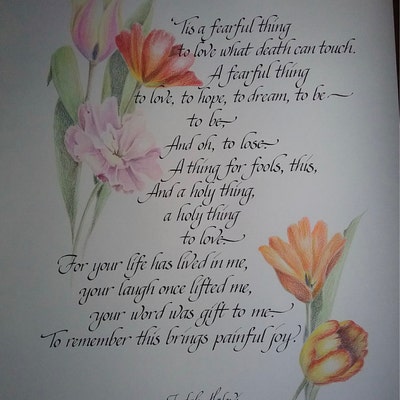 'Tis a fearful thing
to love what death can touch.
A fearful thing
to love, to hope, to dream, to be –
to be –
And oh, to lose –
A thing for fools, this,
And a holy thing,
a holy thing
to love –
For your life has lived in me,
your laugh once lifted me,
your word was gift to me –
To remember this brings painful joy.